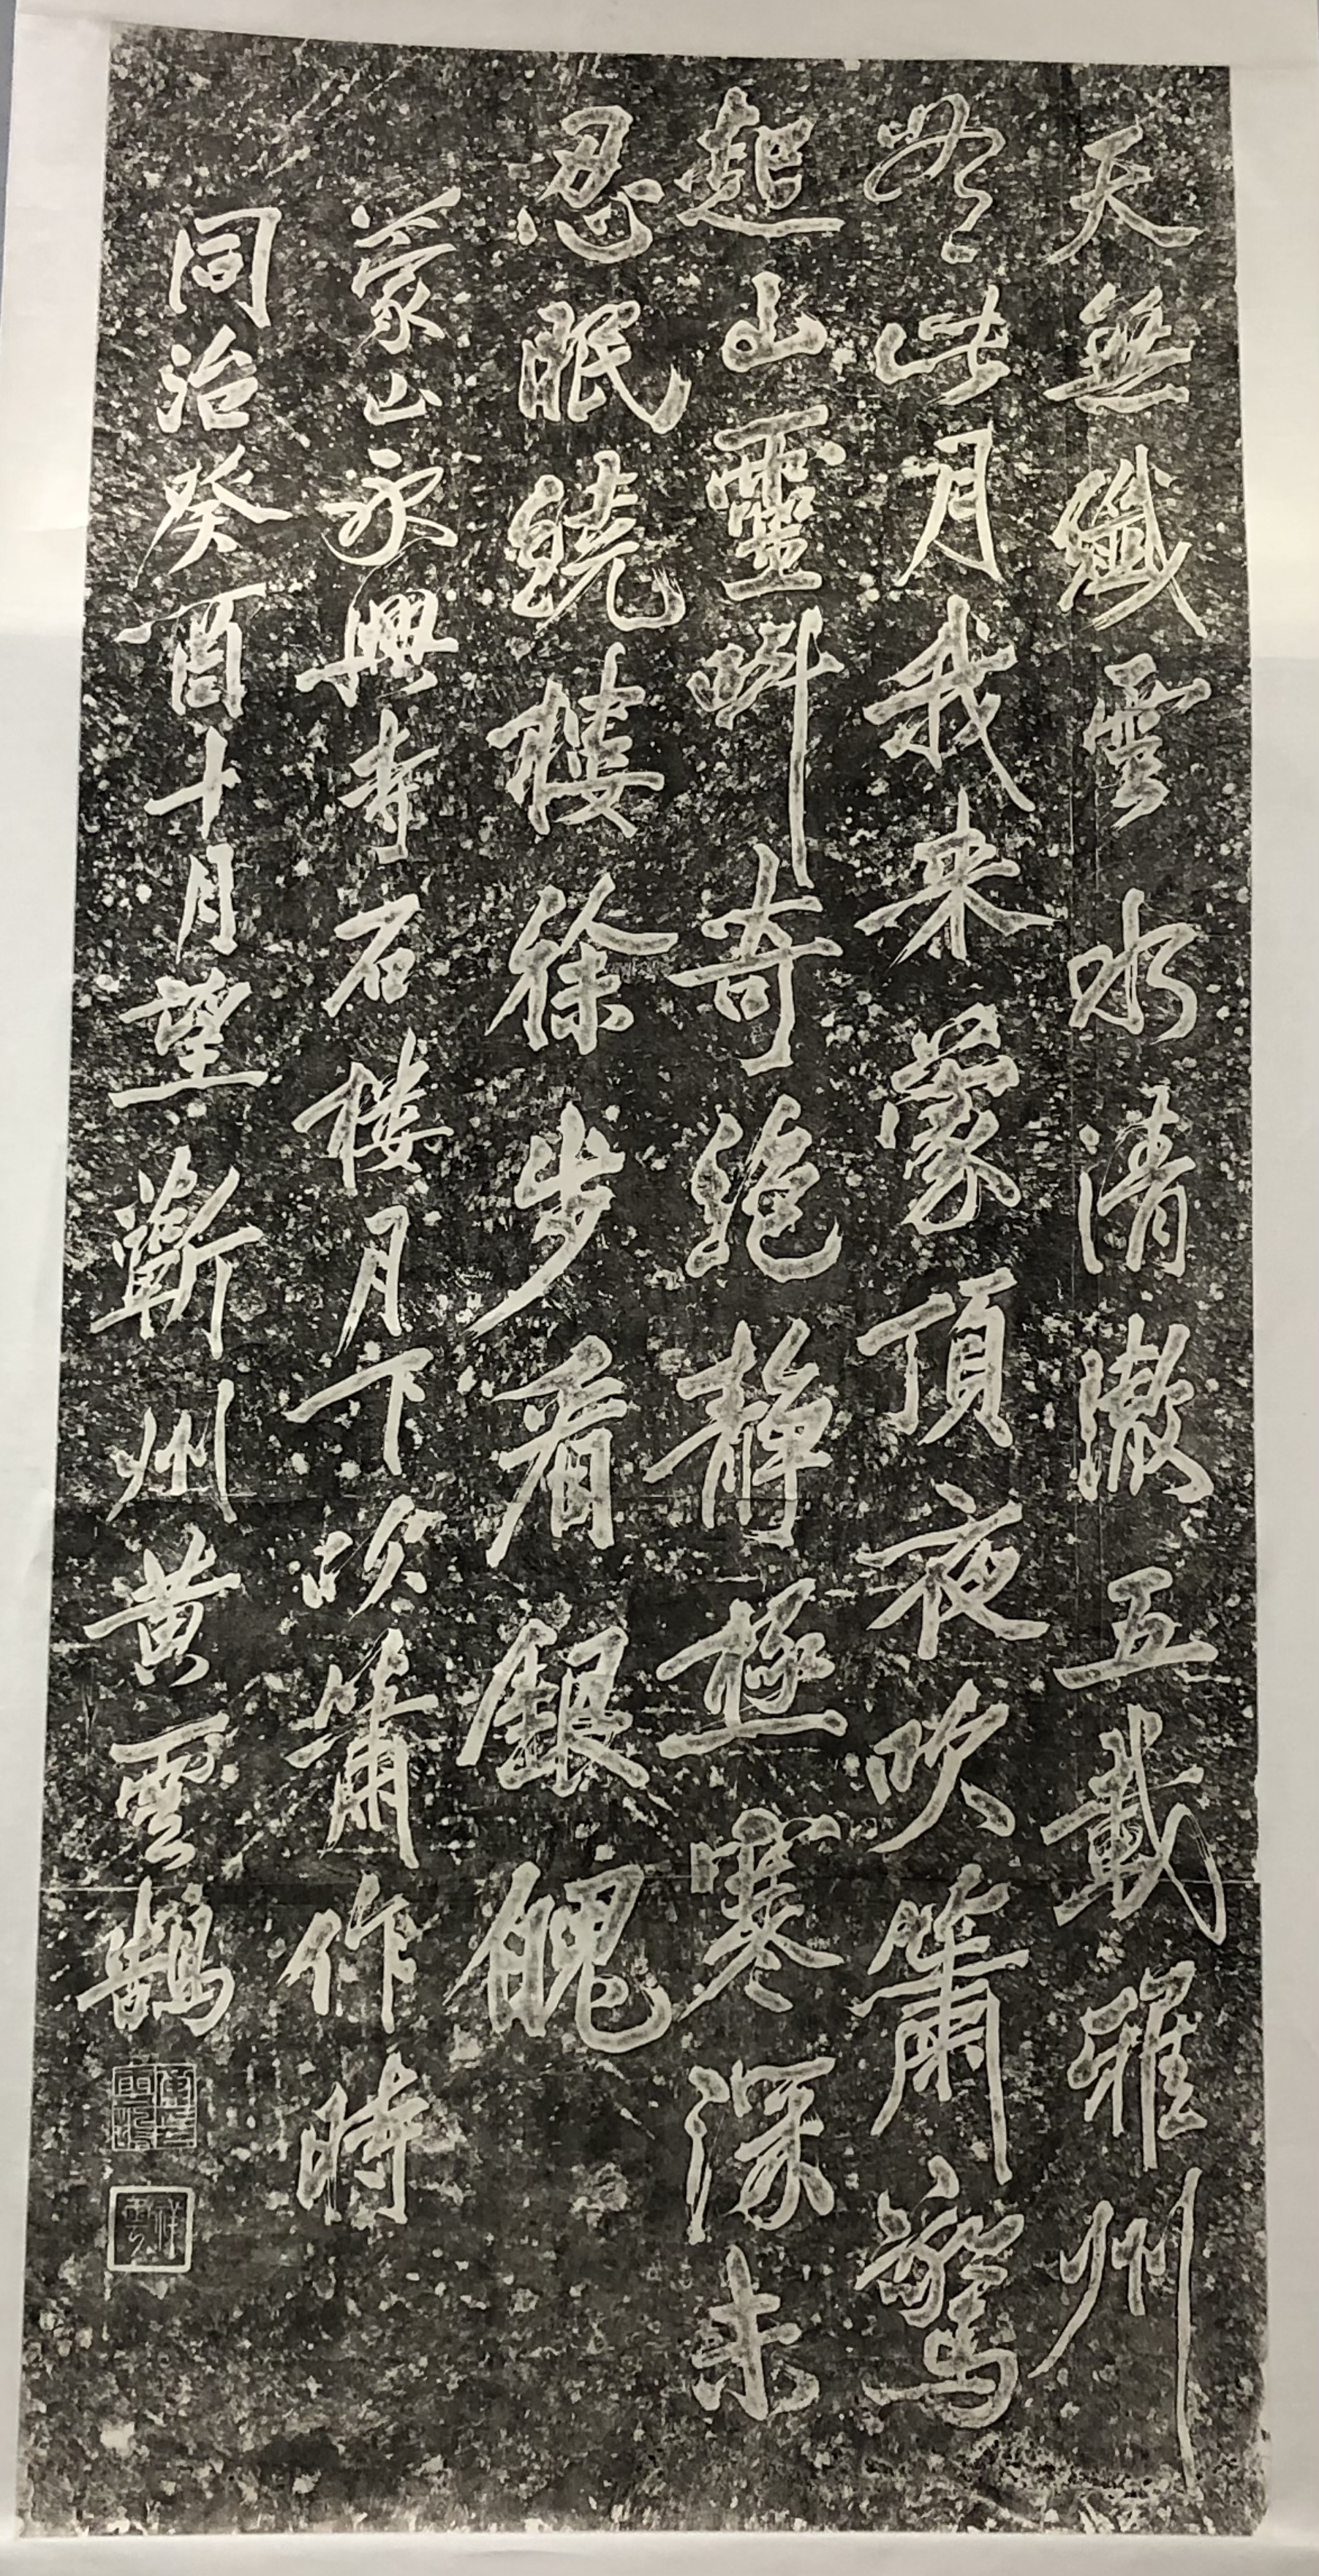 天無纖雲水清澈五載雅州
無此月我来蒙頂夜吹簫驚
起山靈叫奇絶静極寒深未
忍眠繞樓徐步看銀魄
蒙山永興寺石樓月下吹簫作時
同治癸酉十月望蘄州黄雲鵠